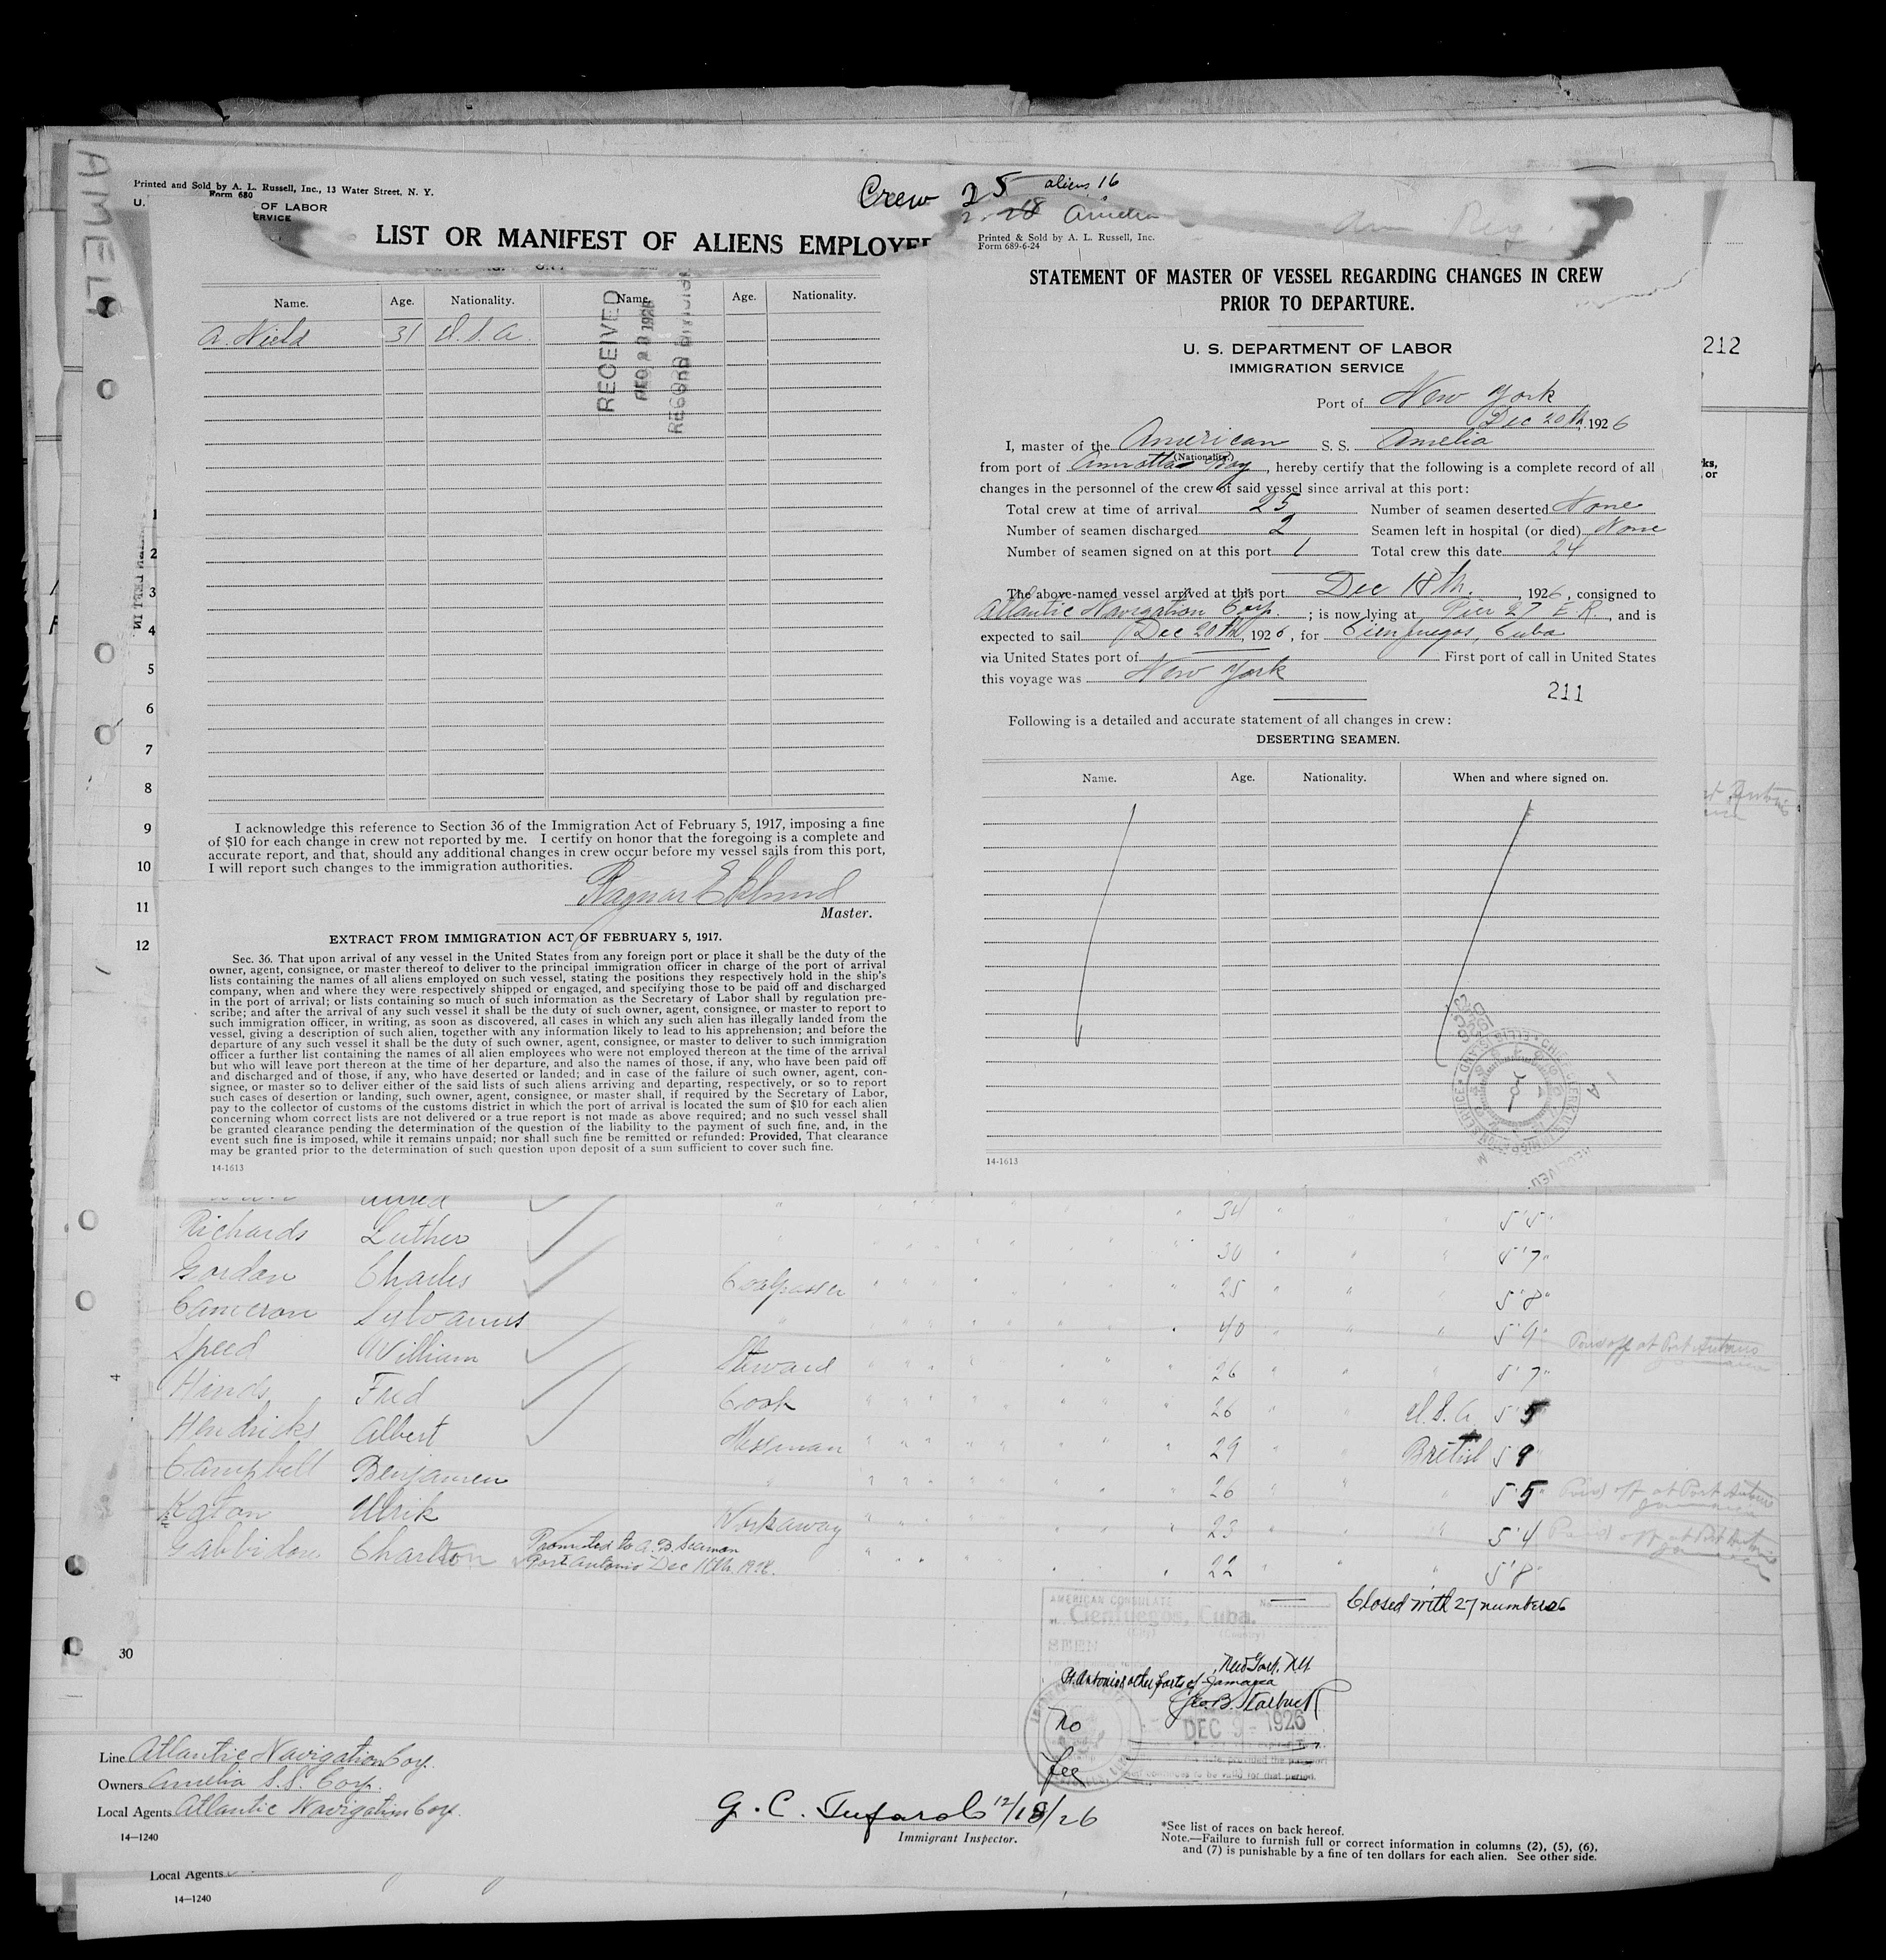 AMELI
Printed and Sold by A. L. Russell, Inc., 13 Water Street, N. Y.
Form 680
U.
OF LABOR
ERVICE
Crew 25 aliens 16
Amelia
LIST OR MANIFEST OF ALIENS EMPLOYE
Name. Age. Nationality. Name. Age. Nationality.
A. Nield 31 U.S.A.
RECEIVED
1926
RECORD DIVISION
1
2
3
4
5
6
7
8
9
10
11
12
I acknowledge this reference to Section 36 of the Immigration Act of February 5, 1917, imposing a fine
of $10 for each change in crew not reported by me. I certify on honor that the foregoing is a complete and
accurate report, and that, should any additional changes in crew occur before my vessel sails from this port,
I will report such changes to the immigration authorities.
Ragnar Eklund
Master.
EXTRACT FROM IMMIGRATION ACT OF FEBRUARY 5, 1917.
Sec. 36. That upon arrival of any vessel in the United States from any foreign port or place it shall be the duty of the
owner, agent, consignee, or master thereof to deliver to the principal immigration officer in charge of the port of arrival
lists containing the names of all aliens employed on such vessel, stating the positions they respectively hold in the ship's
company, when and where they were respectively shipped or engaged, and specifying those to be paid off and discharged
in the port of arrival; or lists containing so much of such information as the Secretary of Labor shall by regulation pre-
scribe; and after the arrival of any such vessel it shall be the duty of such owner, agent, consignee, or master to report to
such immigration officer, in writing, as soon as discovered, all cases in which any such alien has illegally landed from the
vessel, giving a description of such alien, together with any information likely to lead to his apprehension; and before the
departure of any such vessel it shall be the duty of such owner, agent, consignee, or master to deliver to such immigration
officer a further list containing the names of all alien employees who were not employed thereon at the time of the arrival
but who will leave port thereon at the time of her departure, and also the names of those, if any, who have been paid off
and discharged and of those, if any, who have deserted or landed; and in case of the failure of such owner, agent, con-
signee, or master so to deliver either of the said lists of such aliens arriving and departing, respectively, or so to report
such cases of desertion or landing, such owner, agent, consignee, or master shall, if required by the Secretary of Labor,
pay to the collector of customs of the customs district in which the port of arrival is located the sum of $10 for each alien
concerning whom correct lists are not delivered or a true report is not made as above required; and no such vessel shall
be granted clearance pending the determination of the question of the liability to the payment of such fine, and, in the
event such fine is imposed, while it remains unpaid; nor shall such fine be remitted or refunded: Provided, That clearance
may be granted prior to the determination of such question upon deposit of a sum sufficient to cover such fine.
14-1613
Printed & Sold by A. L. Russell, Inc.
Form 689-6-24
STATEMENT OF MASTER OF VESSEL REGARDING CHANGES IN CREW
PRIOR TO DEPARTURE.
U. S. DEPARTMENT OF LABOR
IMMIGRATION SERVICE
Port of New York
Dec 20th, 1926
I, master of the American S. S. Amelia
(Nationality.)
from port of Annotta Bay, hereby certify that the following is a complete record of all
changes in the personnel of the crew of said vessel since arrival at this port:
Total crew at time of arrival 25 Number of seamen deserted None
Number of seamen discharged 2 Seamen left in hospital (or died) None
Number of seamen signed on at this port 1 Total crew this date 24
The above-named vessel arrived at this port Dec 18th, 1926, consigned to
Atlantic Navigation Corp.; is now lying at Pier 27 E.R., and is
expected to sail Dec 20th, 1926, for Cienfuegos, Cuba
via United States port of First port of call in United States
this voyage was New York
211
Following is a detailed and accurate statement of all changes in crew:
DESERTING SEAMEN.
Name. Age. Nationality. When and where signed on.
14-1613
212
ks,
or
Alfred 34 5'5"
Richards Luther 30 5'7"
Gordon Charles Coalpasser 25 5'8"
Cameron Sylvanus " 40 5'9" Paid off at Port Antonio Jamaica
Speed William Steward 26 5'7"
Hinds Fred Cook 26 U.S.A. 5 5
Hendricks Albert Messman 29 British 5 9
Campbell Benjamen " 26 5 5 Paid off at Port Antonio Jamaica
Katon Ulrik Workaway 23 5'4 Paid off at Port Antonio Jamaica
Gabbidon Charlton Promoted to A.B. Seaman
Port Antonio Dec 11th 1926. 22 5'8"
Closed with 27 numbers
30
AMERICAN CONSULATE No.
Cienfuegos, Cuba.
(City) (Country)
SEEN
New York, N.Y.
Pt. Antonio & other ports of Jamaica
Geo. B. Starbuck
DEC 9 - 1926
No
fee
Line Atlantic Navigation Corp.
Owners Amelia S.S. Corp.
Local Agents Atlantic Navigation Corp.
14—1240
G. C. Tufarolo 12/18/26
Immigrant Inspector.
*See list of races on back hereof.
Note.—Failure to furnish full or correct information in columns (2), (5), (6),
and (7) is punishable by a fine of ten dollars for each alien. See other side.
Local Agents
14—1240